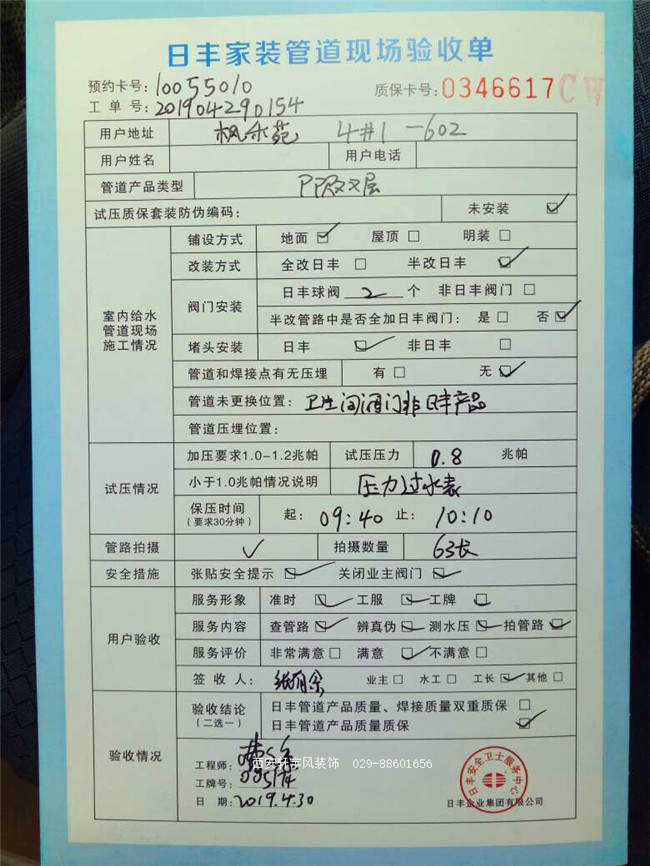 日丰家装管道现场验收单
预约卡号：10055010 质保卡号：0346617CW
工单号：201904290154
用户地址 枫林苑 4#1-602
用户姓名 用户电话
管道产品类型 PPR双层
试压质保套装防伪编码： 未安装 ☑
室内给水管道现场施工情况
铺设方式 地面 ☑ 屋顶 □ 明装 □
改装方式 全改日丰 □ 半改日丰 ☑
阀门安装 日丰球阀 2 个 非日丰阀门 □
半改管路中是否全加日丰阀门： 是 □ 否 ☑
堵头安装 日丰 ☑ 非日丰 □
管道和焊接点有无压埋 有 □ 无 ☑
管道未更换位置： 卫生间阀门非日丰产品
管道压埋位置：
试压情况
加压要求1.0-1.2兆帕 试压压力 0.8 兆帕
小于1.0兆帕情况说明 压力过水表
保压时间（要求30分钟） 起： 09:40 止： 10:10
管路拍摄 ✓ 拍摄数量 63张
安全措施 张贴安全提示 ☑ 关闭业主阀门 ☑
用户验收
服务形象 准时 ☑ 工服 ☑ 工牌 □
服务内容 查管路 ☑ 辨真伪 ☑ 测水压 ☑ 拍管路 ☑
服务评价 非常满意 □ 满意 ☑ 不满意 □
签收人： 业主 □ 水工 □ 工长 ☑ 其他 □
验收情况
验收结论（二选一） 日丰管道产品质量、焊接质量双重质保 □
日丰管道产品质量质保 ☑
工程师：
工牌号：
日期：2019.4.30
日丰企业集团有限公司
日丰安全卫士服务中心
风装饰 029-88601656